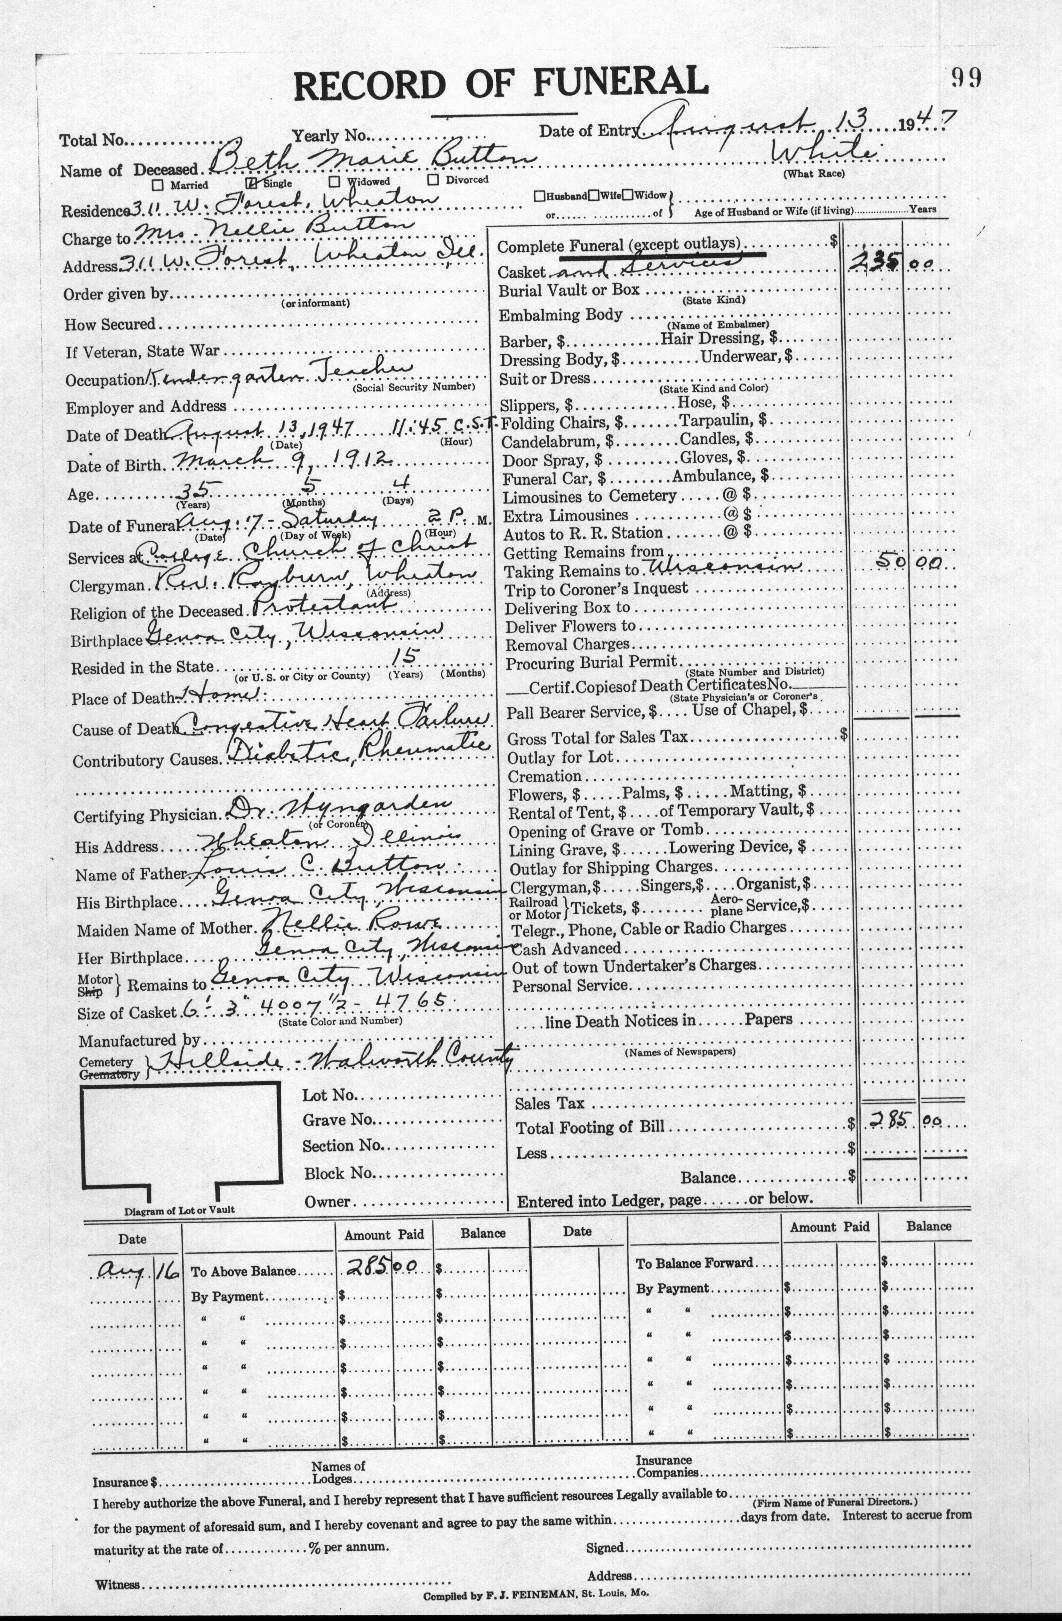 99
RECORD OF FUNERAL
Total No. Yearly No. Date of Entry August 13 1947
Name of Deceased. Beth Marie Button White
(What Race)
Married Single Widowed Divorced
Residence 311 W. Forest, Wheaton
Husband Wife Widow
or of Age of Husband or Wife (if living) Years
Charge to Mrs. Nellie Button
Address 311 W. Forest, Wheaton Ill.
Order given by
(or informant)
How Secured
If Veteran, State War
Occupation Kindergarten Teacher
(Social Security Number)
Employer and Address
Date of Death August 13, 1947 11:45 C.S.T.
(Date) (Hour)
Date of Birth. March 9, 1912
Age 35 5 4
(Years) (Months) (Days)
Date of Funeral Aug. 17 - Saturday 2 P. M.
(Date) (Day of Week) (Hour)
Services at College Church of Christ
Clergyman. Rev. Rayburn, Wheaton
(Address)
Religion of the Deceased. Protestant
Birthplace Genoa City, Wisconsin
Resided in the State 15
(or U. S. or City or County) (Years) (Months)
Place of Death Home
Cause of Death Congestive Heart Failure
Contributory Causes. Diabetic, Rheumatic
Certifying Physician. Dr. Wyngarden
(or Coroner)
His Address Wheaton Illinois
Name of Father Louis C. Button
His Birthplace Genoa City, Wisconsin
Maiden Name of Mother. Nellie Rowe
Her Birthplace Genoa City, Wisconsin
Motor Ship } Remains to Genoa City Wisconsin
Size of Casket 6' 3" 4007 1/2 - 4765
(State Color and Number)
Manufactured by
Cemetery Crematory } Hillside - Walworth County
Lot No.
Grave No.
Section No.
Block No.
Owner
Diagram of Lot or Vault
Complete Funeral (except outlays) $
Casket and Services 235 00
Burial Vault or Box
(State Kind)
Embalming Body
(Name of Embalmer)
Barber, $ Hair Dressing, $
Dressing Body, $ Underwear, $
Suit or Dress
(State Kind and Color)
Slippers, $ Hose, $
Folding Chairs, $ Tarpaulin, $
Candelabrum, $ Candles, $
Door Spray, $ Gloves, $
Funeral Car, $ Ambulance, $
Limousines to Cemetery @ $
Extra Limousines @ $
Autos to R. R. Station @ $
Getting Remains from
Taking Remains to Wisconsin 50 00
Trip to Coroner's Inquest
Delivering Box to
Deliver Flowers to
Removal Charges
Procuring Burial Permit
(State Number and District)
Certif. Copies of Death Certificates No.
(State Physician's or Coroner's
Pall Bearer Service, $ Use of Chapel, $
Gross Total for Sales Tax $
Outlay for Lot
Cremation
Flowers, $ Palms, $ Matting, $
Rental of Tent, $ of Temporary Vault, $
Opening of Grave or Tomb
Lining Grave, $ Lowering Device, $
Outlay for Shipping Charges
Clergyman, $ Singers, $ Organist, $
Railroad or Motor } Tickets, $ Aeroplane Service, $
Telegr., Phone, Cable or Radio Charges
Cash Advanced
Out of town Undertaker's Charges
Personal Service
line Death Notices in Papers
(Names of Newspapers)
Sales Tax
Total Footing of Bill $ 285 00
Less $
Balance $
Entered into Ledger, page or below.
Date Amount Paid Balance Date Amount Paid Balance
Aug 16 To Above Balance 285 00 $ To Balance Forward $
By Payment $ $ By Payment $ $
" " $ $ " " $ $
" " $ $ " " $ $
" " $ $ " " $ $
" " $ $ " " $ $
" " $ $ " " $ $
" " $ $ " " $ $
Insurance $ Names of Lodges Insurance Companies
I hereby authorize the above Funeral, and I hereby represent that I have sufficient resources Legally available to
(Firm Name of Funeral Directors.)
for the payment of aforesaid sum, and I hereby covenant and agree to pay the same within days from date. Interest to accrue from
maturity at the rate of % per annum. Signed
Witness Address
Compiled by F. J. FEINEMAN, St. Louis, Mo.